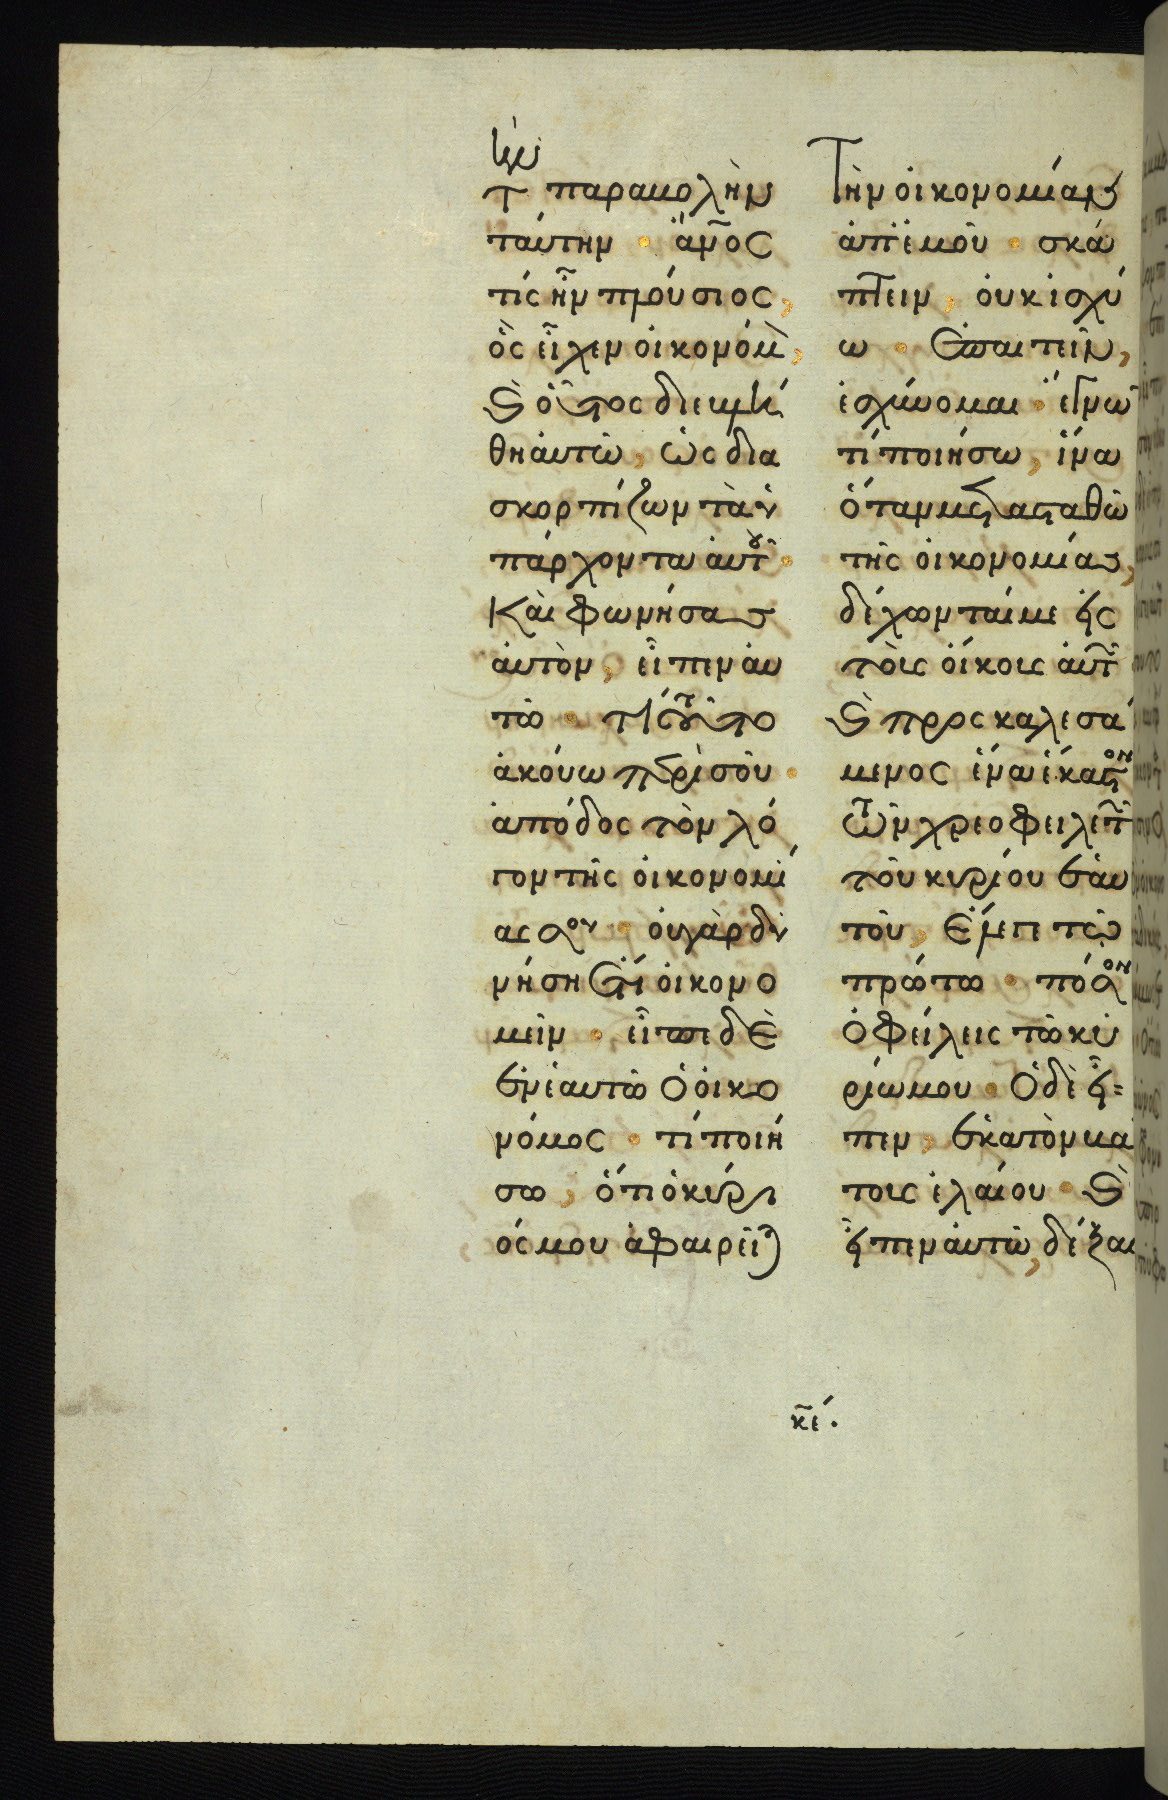 τ παραβολὴν
ταύτην · ἄν̅ος
τίς ἦν πλούσιος,
ὃς εἶχεν οἰκονόμ,
καὶ οὗτος διεβλή
θη αὐτῶ, ὡς δια
σκορπίζων τὰ ὑ
πάρχοντα αὐτοῦ ·
Καὶ φωνήσας
αὐτὸν, εἶπεν αὐ
τῶ · τί τοῦτο
ἀκούω περὶ σοῦ ·
ἀπόδος τὸν λό
γον τῆς οἰκονομί
ας σου · οὐ γὰρ δυ
νήση ἔτι οἰκονο
μεῖν · εἶπε δὲ
ἐν ἑαυτῶ ὁ οἰκο
νόμος · τί ποιή
σω, ὅτι ὁ κύρι
ός μου ἀφαιρεῖται
Τὴν οἰκονομίαν
ἀπ' ἐμοῦ · σκά
πτειν, οὐκ ἰσχύ
ω · ἐπαιτεῖν,
ἐσχύνομαι · ἔγνω
τί ποιήσω, ἵνα
ὅταν μετασταθῶ
τῆς οἰκονομίας,
δέχωνταί με εἰς
τοὺς οἴκους αὐτ
καὶ προσκαλεσά
μενος ἕνα ἕκαστον
τῶν χρεοφειλετ
τοῦ κυρίου ἑαυ
τοῦ, ἔλεγε τῶ
πρώτω · πόσον
ὀφείλεις τῶ κυ
ρίω μου · Ὁ δὲ εἶ=
πεν, ἑκατὸν βά
τους ἐλαίου · καὶ
εἶπεν αὐτῶ, δέξαι
κ̅ε̅.